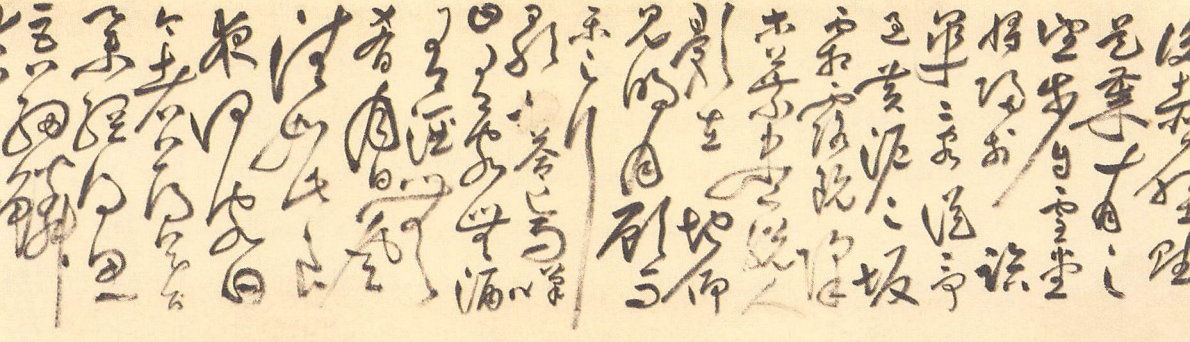 後赤壁賦
是歲十月之
望步自雪堂
將歸於臨
皋二客從予
過黃泥之坂
霜露既降
木葉盡脫人
影在地仰
見明月顧而
樂之行
歌相答已而嘆
曰有客無酒
有酒無
肴月白風
清如此良
夜何客曰
今者薄暮
舉網得魚
巨口細鱗